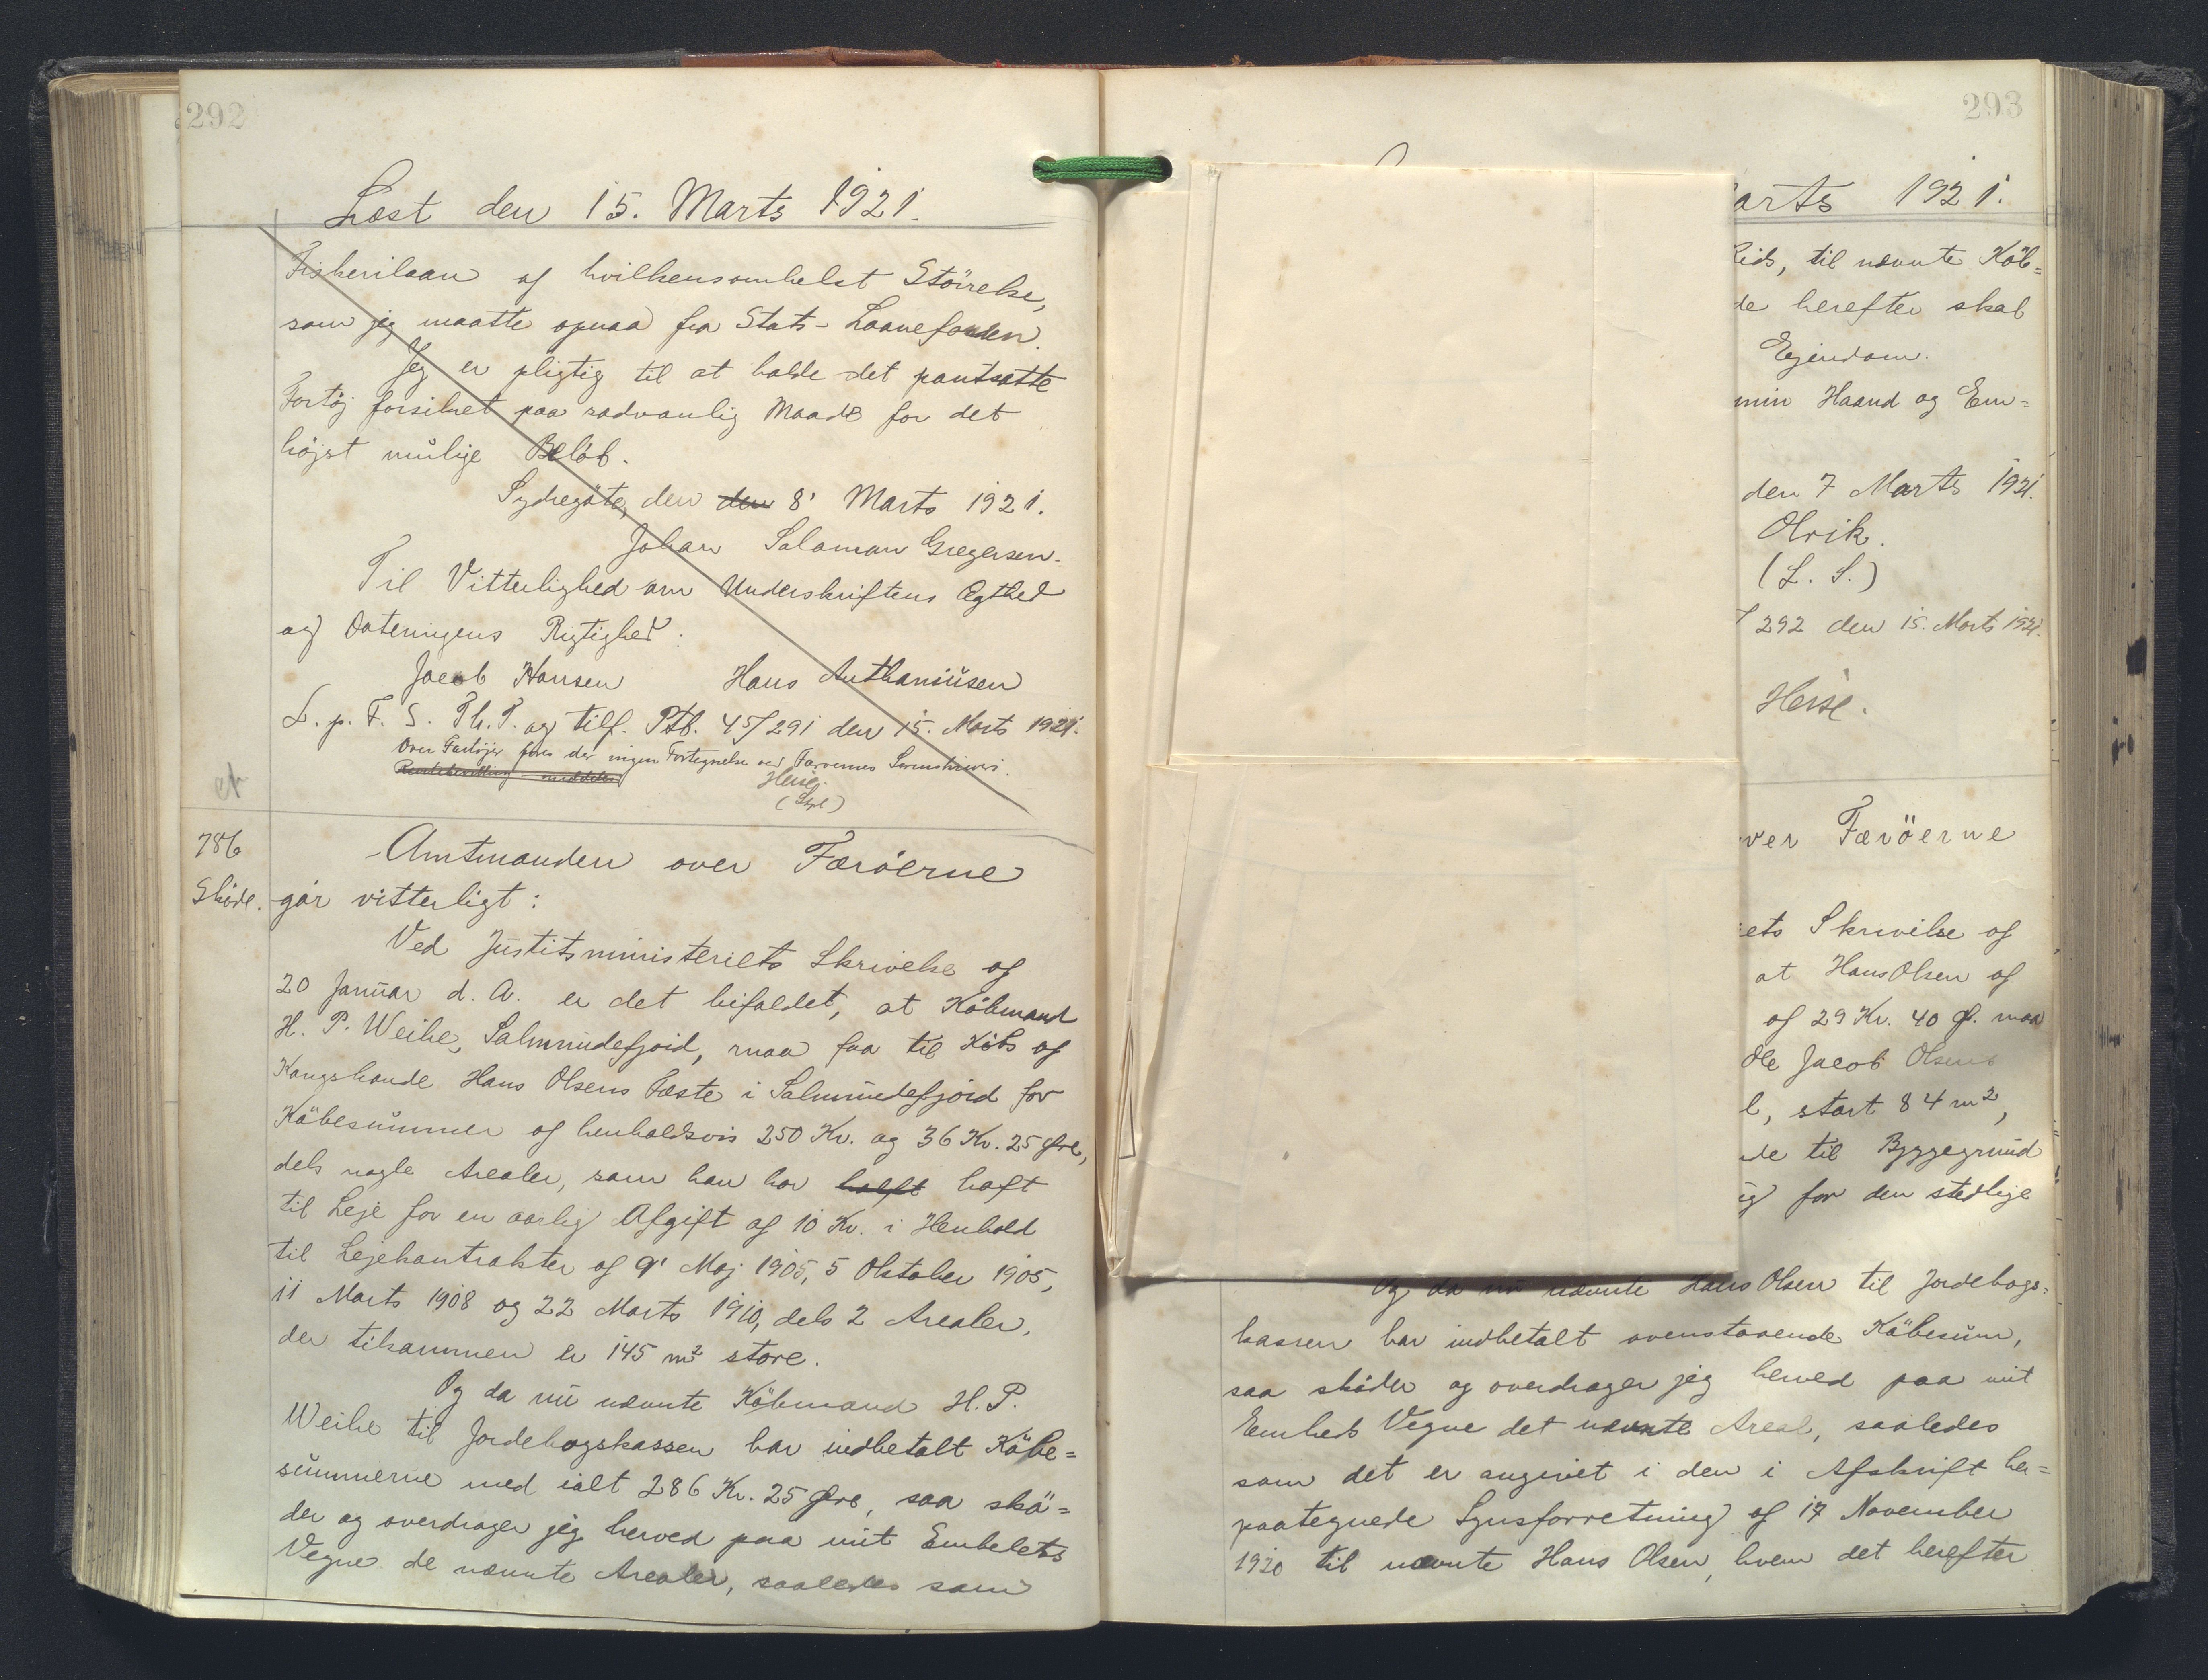 292
Læst den 15. Marts 1921.
Fiskerilaan af hvilkensomhelst Störrelse,
som jeg maatte opnaa fra Stats-Laanefonden.
Jeg er pligtig til at holde det pantsatte
Fartöj forsikret paa sædvanlig Maade for det
höjst mulige Belöb.
Sydregöte, den den 8' Marts 1921.
Johan Salomon Gregersen.
Til Vitterlighed om Underskriftens Ægthed
og Dateringens Rigtighed:
Jacob Hansen Hans Anthoniusen
L. p. F. S. Th. T. og tilf. Ptb. 45/291 den 15. Marts 1921.
Over Fartöjer föres der ingen Fortegnelse ved Færøernes Sorenskriveri.
Heise.
786
Sköde.
Amtmanden over Færöerne
gör vitterligt:
Ved Justitsministeriets Skrivelse af
20 Januar d. A. er det bifaldet, at Köbmand
H. P. Weihe, Salmundefjord, maa faa til Köbs af
Kongsbonde Hans Olsens Fæste i Salmundefjord for
Köbesummer af henholdsvis 250 Kr. og 36 Kr. 25 Øre,
dels nogle Arealer, som han har halft haft
til Leje for en aarlig Afgift af 10 Kr. i Henhold
til Lejekontrakter af 9' Maj 1905, 5 Oktober 1905,
11 Marts 1908 og 22 Marts 1910, dels 2 Arealer,
der tilsammen er 145 m² store.
Og da nu nævnte Köbmand H. P.
Weihe til Jordebogskassen har indbetalt Köbe=
summerne med ialt 286 Kr. 25 Øre, saa skö=
der og overdrager jeg herved paa mit Embedets
Vegne de nævnte Arealer, saaledes som
293
arts 1921.
Reids, til nævnte Köb=
de herefter skal
Ejendom.
min Haand og Em=
den 7 Marts 1921.
Olrik.
(L. S.)
/292 den 15. Marts 1921.
Heise.
ver Færöerne
ets Skrivelse af
at Hans Olsen af
af 29 Kr. 40 Ø. maa
Ole Jacob Olsens
l, stort 84 m²,
de til Byggegrund
ig for den stedlige
Og da nu nævnte Hans Olsen til Jordebogs=
kassen har indbetalt ovenstaaende Köbesum,
saa sköder og overdrager jeg herved paa mit
Embeds Vegne det nævnte Areal, saaledes
som det er angivet i den i Afskrift her=
paategnede Synsforretning af 17 November
1920 til nævnte Hans Olsen, hvem det herefter